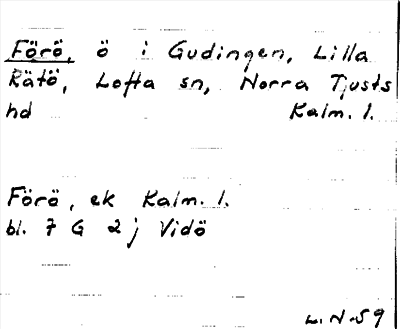 Förö, ö i Gudingen, Lilla
Rätö, Lofta sn, Norra Tjusts
hd Kalm. l.
Förö, ek Kalm. l.
bl. 7 G 2 j Vidö
L.N-59